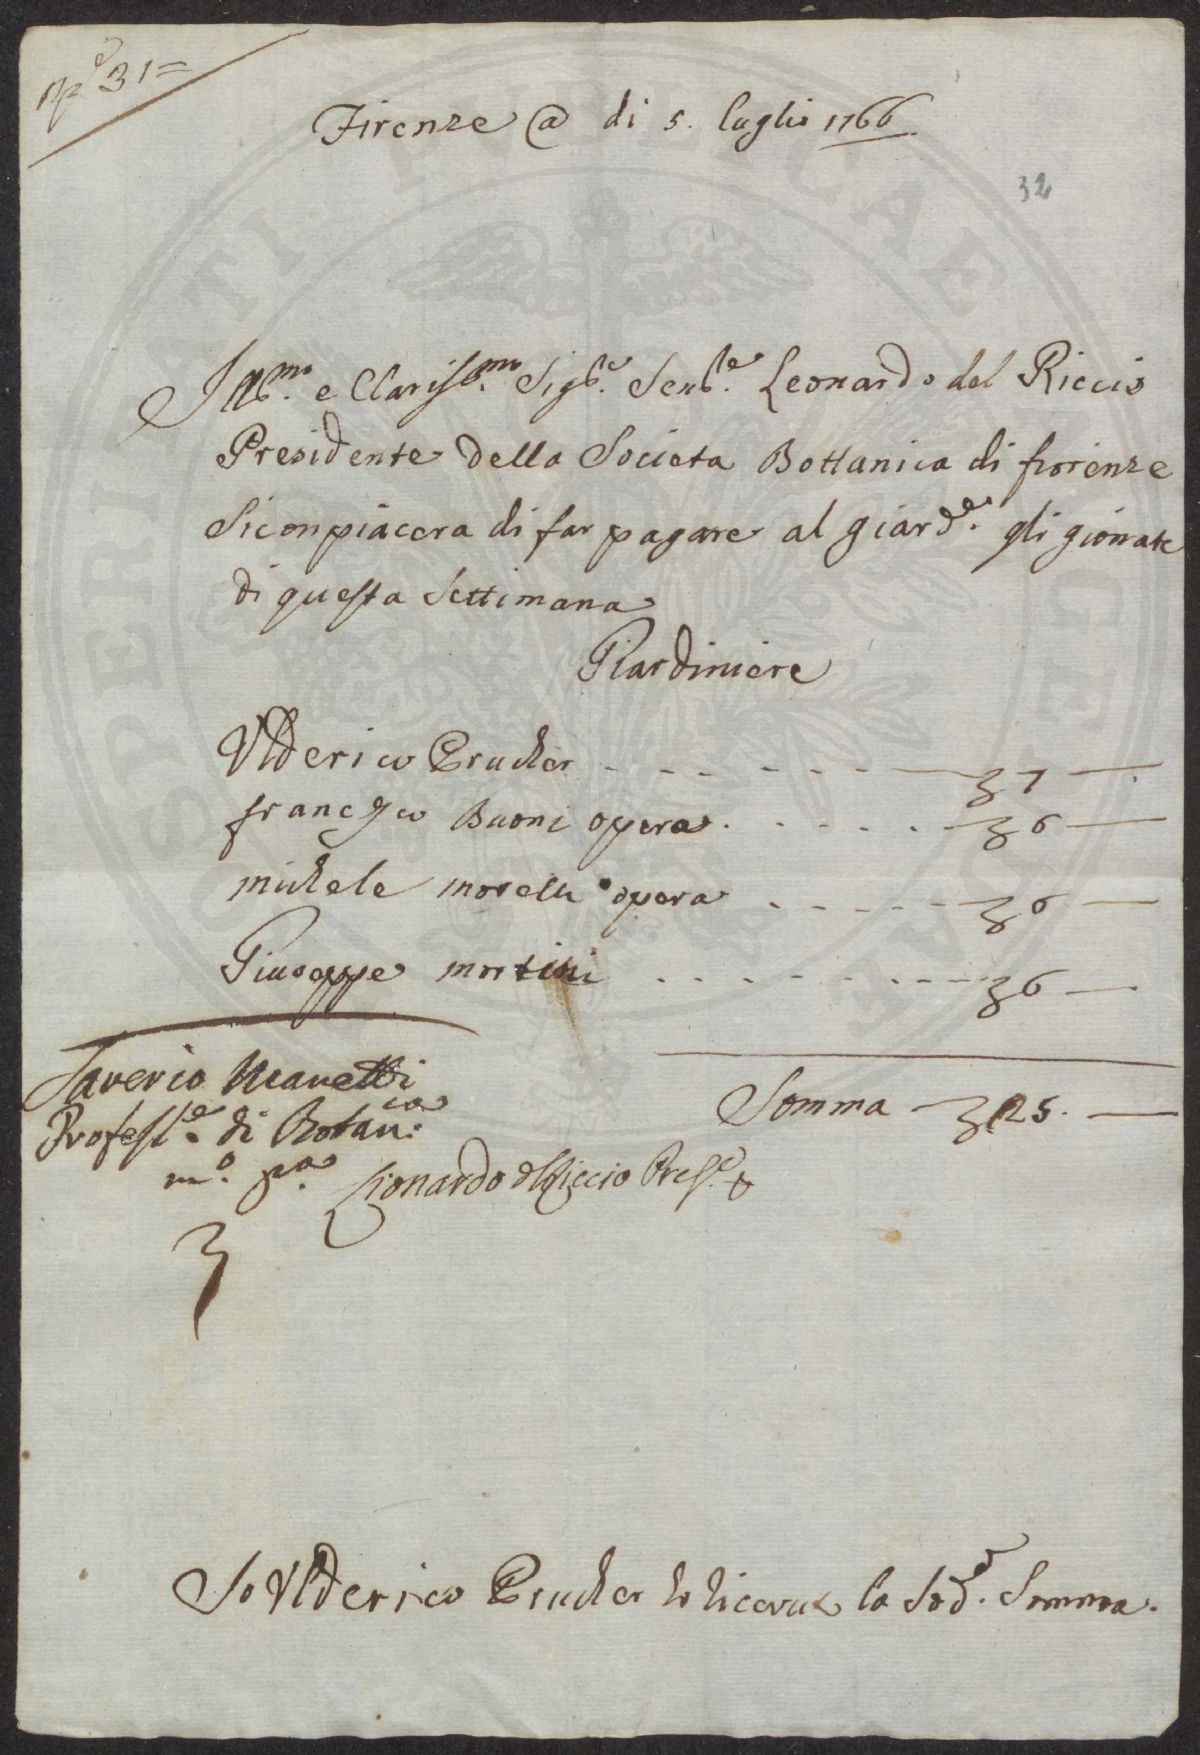 N.º 31=
Firenze @ di 5. luglio 1766
32
Illmo. e Clarissmo. Sigre. Senre. Leonardo del Riccio
Presidente della Societa Bottanica di fiorenze
Si conpiacera di far pagare al giarde. gli giornate
di questa Settimana
Giardiniere
Vlderico Prucker 7
francesco Buoni opera 6
michele morelli opera 6
Giuseppe martini 6
Saverio Manetti
Somma 25.
Profess.e di Botan.ca
m.o p.a Lionardo del Riccio Pres.e
Io Vlderico Prucker ho riceruto la Sod.a Somma.
PROSPERITATI PUBLICAE AUGENDAE